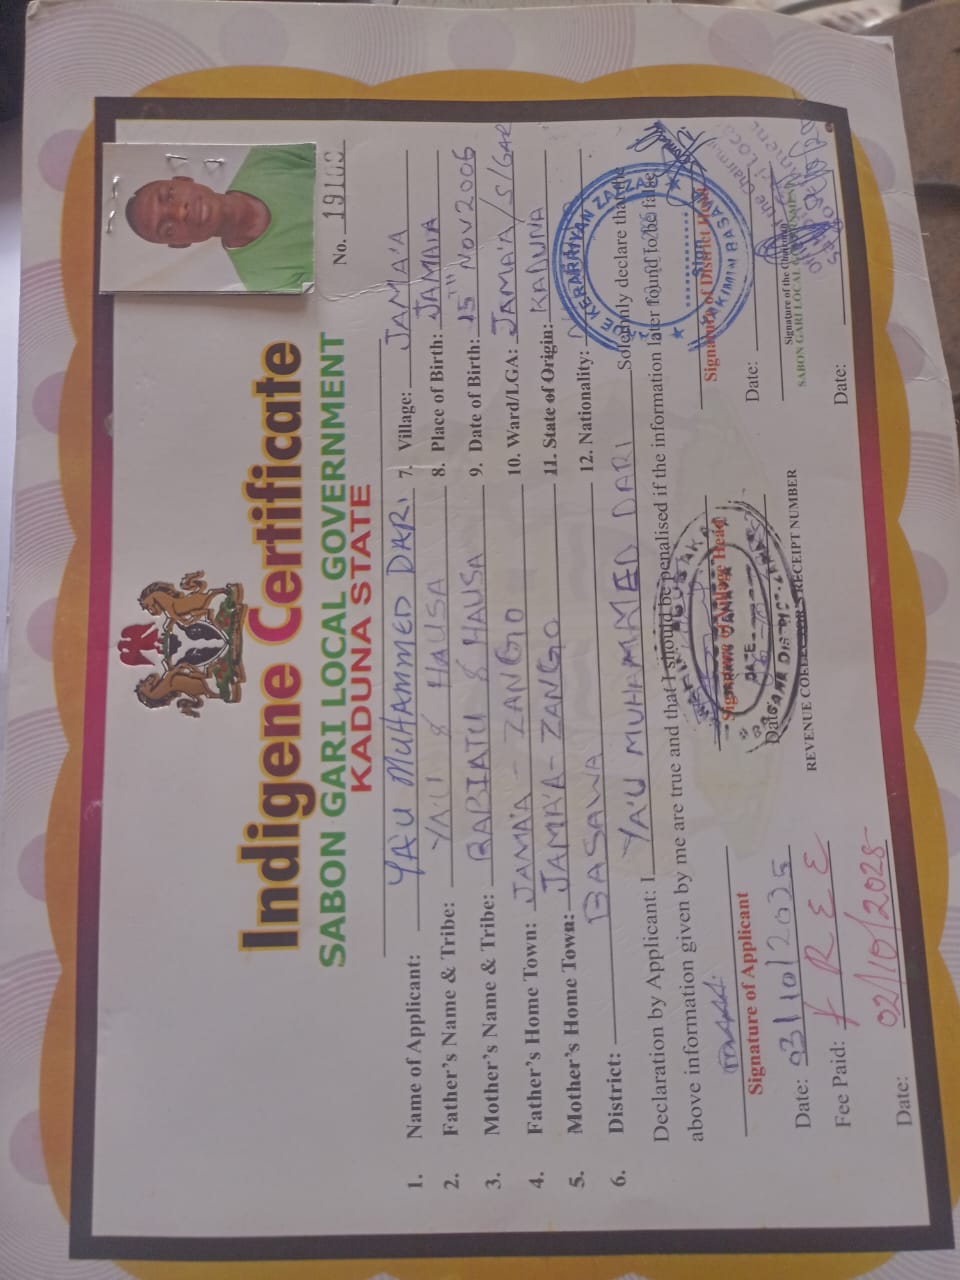 No. 19103
Indigene Certificate
SABON GARI LOCAL GOVERNMENT
KADUNA STATE
1. Name of Applicant: YA'U MUHAMMED DARI
2. Father's Name & Tribe: YA'U & HAUSA
3. Mother's Name & Tribe: RABIATU & HAUSA
4. Father's Home Town: JAMA'A - ZANGO
5. Mother's Home Town: JAMA'A - ZANGO
6. District: BASAWA
7. Village: JAMA'A
8. Place of Birth: JAMA'A
9. Date of Birth: 15TH NOV 2006
10. Ward/LGA: JAMA'A / S/GAR
11. State of Origin: KADUNA
12. Nationality:
Declaration by Applicant: I YA'U MUHAMMED DARI Solemnly declare that the
above information given by me are true and that I should be penalised if the information later found to be false
Signature of Applicant
Date:
Fee Paid: FREE
Date: 02/10/2025
Signature of Village Head
Date:
REVENUE COLLECTOR'S RECEIPT NUMBER
Signature of District Head
Date:
Signature of the Chairman
SABON GARI LOCAL GOVERNMENT
Date:
HAKIMIN BASAWA
Sign
DATE